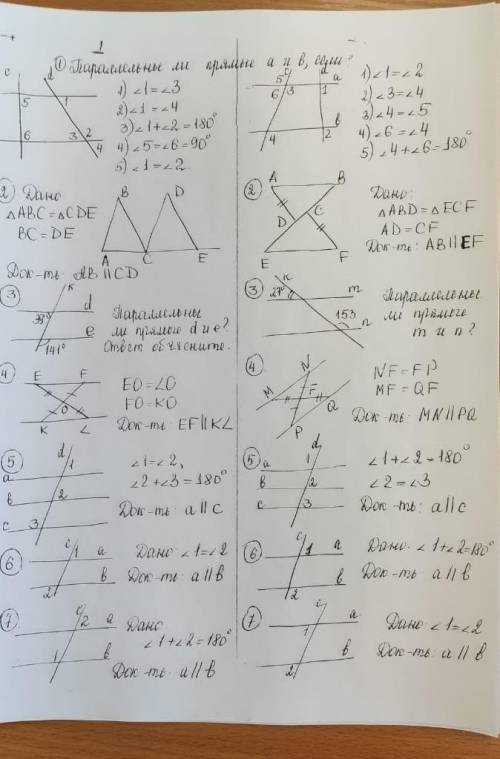 1
① Параллельны ли прямые а и в, если?
c d
5 1
6 3 2
4
1) ∠1=∠3
2) ∠1=∠4
3) ∠1+∠2=180°
4) ∠5=∠6=90°
5) ∠1=∠2
c d a
5
6 3 1
в
4 2
1) ∠1=∠2
2) ∠3=∠4
3) ∠4=∠5
4) ∠6=∠4
5) ∠4+∠6=180°
② Дано
△ABC=△CDE
BC=DE
B D
A C E
Док-ть: AB∥CD
② A B
D C
E F
Дано:
△ABD=△ECF
AD=CF
Док-ть: AB∥EF
③ K
39° d
e
141°
Параллельны
ли прямые d и e?
Ответ объясните.
③ K
27° m
153 n
Параллельны
ли прямые
m и n?
④ E F
O
K L
EO=LO
FO=KO
Док-ть: EF∥KL
④ N
M F Q
P
NF=FP
MF=QF
Док-ть: MN∥PQ
⑤ d
a 1
в 2
c 3
∠1=∠2,
∠2+∠3=180°
Док-ть: a∥c
⑤ d
a 1
в 2
c 3
∠1+∠2=180°
∠2=∠3
Док-ть: a∥c
⑥ c 1 a
2 в
Дано ∠1=∠2
Док-ть: a∥в
⑥ c 1 a
2 в
Дано: ∠1+∠2=180°
Док-ть: a∥в
⑦ c 2 a
1 в
Дано
∠1+∠2=180°
Док-ть: a∥в
⑦ c a
1
2 в
Дано: ∠1=∠2
Док-ть: a∥в